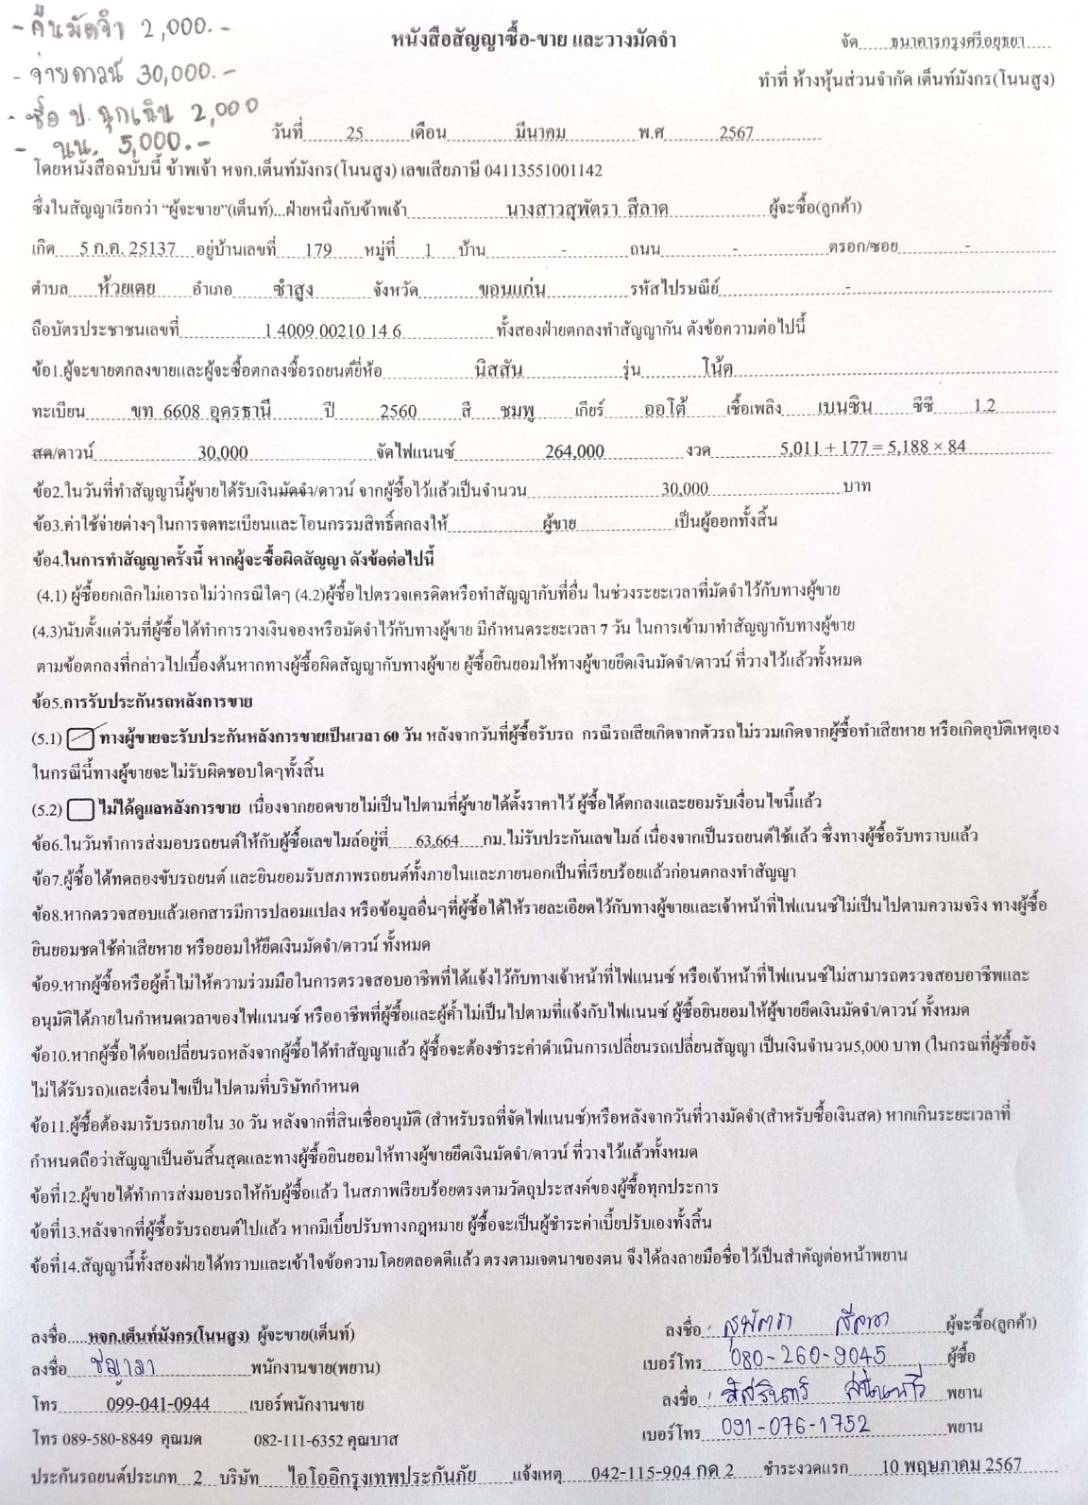 - คืนมัดจำ 2,000.-
- จ่ายดาวน์ 30,000.-
- ซื้อ ป. ฉุกเฉิน 2,000
- นน. 5,000.-
หนังสือสัญญาซื้อ-ขาย และวางมัดจำ
จัด.....ธนาคารกรุงศรีอยุธยา.....
ทำที่ ห้างหุ้นส่วนจำกัด เต็นท์มังกร(โนนสูง)
วันที่ 25 เดือน มีนาคม พ.ศ 2567
โดยหนังสือฉบับนี้ ข้าพเจ้า หจก.เต็นท์มังกร(โนนสูง) เลขเสียภาษี 04113551001142
ซึ่งในสัญญาเรียกว่า “ผู้จะขาย”(เต็นท์)...ฝ่ายหนึ่งกับข้าพเจ้า นางสาวสุพัตรา สีลาด ผู้จะซื้อ(ลูกค้า)
เกิด 5 ก.ค. 25137 อยู่บ้านเลขที่ 179 หมู่ที่ 1 บ้าน - ถนน - ตรอก/ซอย -
ตำบล ห้วยเตย อำเภอ ซำสูง จังหวัด ขอนแก่น รหัสไปรษณีย์ -
ถือบัตรประชาชนเลขที่ 1 4009 00210 14 6 ทั้งสองฝ่ายตกลงทำสัญญากัน ดังข้อความต่อไปนี้
ข้อ1.ผู้จะขายตกลงขายและผู้จะซื้อตกลงซื้อรถยนต์ยี่ห้อ นิสสัน รุ่น โน้ต
ทะเบียน ขท 6608 อุดรธานี ปี 2560 สี ชมพู เกียร์ ออโต้ เชื้อเพลิง เบนซิน ซีซี 1.2
สด/ดาวน์ 30,000 จัดไฟแนนซ์ 264,000 งวด 5,011 + 177 = 5,188 × 84
ข้อ2.ในวันที่ทำสัญญานี้ผู้ขายได้รับเงินมัดจำ/ดาวน์ จากผู้ซื้อไว้แล้วเป็นจำนวน 30,000 บาท
ข้อ3.ค่าใช้จ่ายต่างๆในการจดทะเบียนและโอนกรรมสิทธิ์ตกลงให้ ผู้ขาย เป็นผู้ออกทั้งสิ้น
ข้อ4.ในการทำสัญญาครั้งนี้ หากผู้จะซื้อผิดสัญญา ดังข้อต่อไปนี้
(4.1) ผู้ซื้อยกเลิกไม่เอารถไม่ว่ากรณีใดๆ (4.2)ผู้ซื้อไปตรวจเครดิตหรือทำสัญญากับที่อื่น ในช่วงระยะเวลาที่มัดจำไว้กับทางผู้ขาย
(4.3)นับตั้งแต่วันที่ผู้ซื้อได้ทำการวางเงินจองหรือมัดจำไว้กับทางผู้ขาย มีกำหนดระยะเวลา 7 วัน ในการเข้ามาทำสัญญากับทางผู้ขาย
ตามข้อตกลงที่กล่าวไปเบื้องต้นหากทางผู้ซื้อผิดสัญญากับทางผู้ขาย ผู้ซื้อยินยอมให้ทางผู้ขายยึดเงินมัดจำ/ดาวน์ ที่วางไว้แล้วทั้งหมด
ข้อ5.การรับประกันรถหลังการขาย
(5.1) ทางผู้ขายจะรับประกันหลังการขายเป็นเวลา 60 วัน หลังจากวันที่ผู้ซื้อรับรถ กรณีรถเสียเกิดจากตัวรถไม่รวมเกิดจากผู้ซื้อทำเสียหาย หรือเกิดอุบัติเหตุเอง
ในกรณีนี้ทางผู้ขายจะไม่รับผิดชอบใดๆทั้งสิ้น
(5.2) ไม่ได้ดูแลหลังการขาย เนื่องจากยอดขายไม่เป็นไปตามที่ผู้ขายได้ตั้งราคาไว้ ผู้ซื้อได้ตกลงและยอมรับเงื่อนไขนี้แล้ว
ข้อ6.ในวันทำการส่งมอบรถยนต์ให้กับผู้ซื้อเลขไมล์อยู่ที่ 63,664 กม. ไม่รับประกันเลขไมล์ เนื่องจากเป็นรถยนต์ใช้แล้ว ซึ่งทางผู้ซื้อรับทราบแล้ว
ข้อ7.ผู้ซื้อได้ทดลองขับรถยนต์ และยินยอมรับสภาพรถยนต์ทั้งภายในและภายนอกเป็นที่เรียบร้อยแล้วก่อนตกลงทำสัญญา
ข้อ8.หากตรวจสอบแล้วเอกสารมีการปลอมแปลง หรือข้อมูลอื่นๆที่ผู้ซื้อได้ให้รายละเอียดไว้กับทางผู้ขายและเจ้าหน้าที่ไฟแนนซ์ไม่เป็นไปตามความจริง ทางผู้ซื้อ
ยินยอมชดใช้ค่าเสียหาย หรือยอมให้ยึดเงินมัดจำ/ดาวน์ ทั้งหมด
ข้อ9.หากผู้ซื้อหรือผู้ค้ำไม่ให้ความร่วมมือในการตรวจสอบอาชีพที่ได้แจ้งไว้กับทางเจ้าหน้าที่ไฟแนนซ์ หรือเจ้าหน้าที่ไฟแนนซ์ไม่สามารถตรวจสอบอาชีพและ
อนุมัติได้ภายในกำหนดเวลาของไฟแนนซ์ หรืออาชีพที่ผู้ซื้อและผู้ค้ำไม่เป็นไปตามที่แจ้งกับไฟแนนซ์ ผู้ซื้อยินยอมให้ผู้ขายยึดเงินมัดจำ/ดาวน์ ทั้งหมด
ข้อ10.หากผู้ซื้อได้ขอเปลี่ยนรถหลังจากผู้ซื้อได้ทำสัญญาแล้ว ผู้ซื้อจะต้องชำระค่าดำเนินการเปลี่ยนรถเปลี่ยนสัญญา เป็นเงินจำนวน5,000 บาท (ในกรณที่ผู้ซื้อยัง
ไม่ได้รับรถ)และเงื่อนไขเป็นไปตามที่บริษัทกำหนด
ข้อ11.ผู้ซื้อต้องมารับรถภายใน 30 วัน หลังจากที่สินเชื่ออนุมัติ (สำหรับรถที่จัดไฟแนนซ์)หรือหลังจากวันที่วางมัดจำ(สำหรับซื้อเงินสด) หากเกินระยะเวลาที่
กำหนดถือว่าสัญญาเป็นอันสิ้นสุดและทางผู้ซื้อยินยอมให้ทางผู้ขายยึดเงินมัดจำ/ดาวน์ ที่วางไว้แล้วทั้งหมด
ข้อที่12.ผู้ขายได้ทำการส่งมอบรถให้กับผู้ซื้อแล้ว ในสภาพเรียบร้อยตรงตามวัตถุประสงค์ของผู้ซื้อทุกประการ
ข้อที่13.หลังจากที่ผู้ซื้อรับรถยนต์ไปแล้ว หากมีเบี้ยปรับทางกฎหมาย ผู้ซื้อจะเป็นผู้ชำระค่าเบี้ยปรับเองทั้งสิ้น
ข้อที่14.สัญญานี้ทั้งสองฝ่ายได้ทราบและเข้าใจข้อความโดยตลอดดีแล้ว ตรงตามเจตนาของตน จึงได้ลงลายมือชื่อไว้เป็นสำคัญต่อหน้าพยาน
ลงชื่อ.....หจก.เต็นท์มังกร(โนนสูง) ผู้จะขาย(เต็นท์)
ลงชื่อ สุพัตรา สีลาด ผู้จะซื้อ(ลูกค้า)
ลงชื่อ ชญาภา พนักงานขาย(พยาน)
เบอร์โทร 080-260-9045 ผู้ซื้อ
ลงชื่อ พยาน
โทร 099-041-0944 เบอร์พนักงานขาย
เบอร์โทร 091-076-1752 พยาน
โทร 089-580-8849 คุณมด 082-111-6352 คุณบาส
ประกันรถยนต์ประเภท 2 บริษัท ไอโออิกรุงเทพประกันภัย แจ้งเหตุ 042-115-904 กด 2 ชำระงวดแรก 10 พฤษภาคม 2567